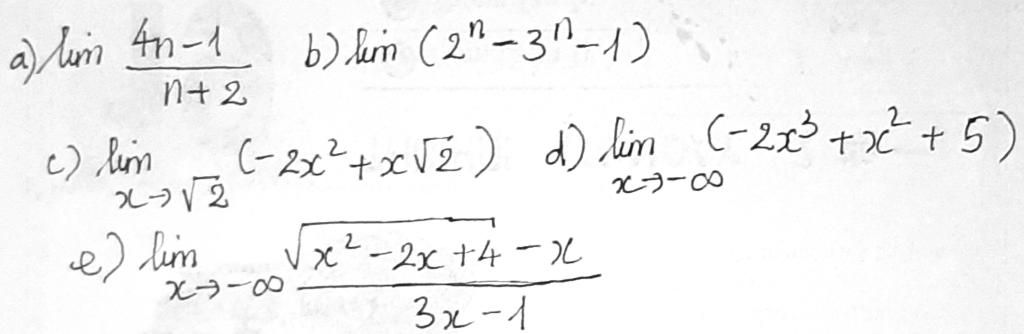 a) lim (4n-1)/(n+2) b) lim (2ⁿ-3ⁿ-1)
c) lim x→√2 (-2x²+x√2) d) lim x→-∞ (-2x³+x²+5)
e) lim x→-∞ (√(x²-2x+4)-x)/(3x-1)